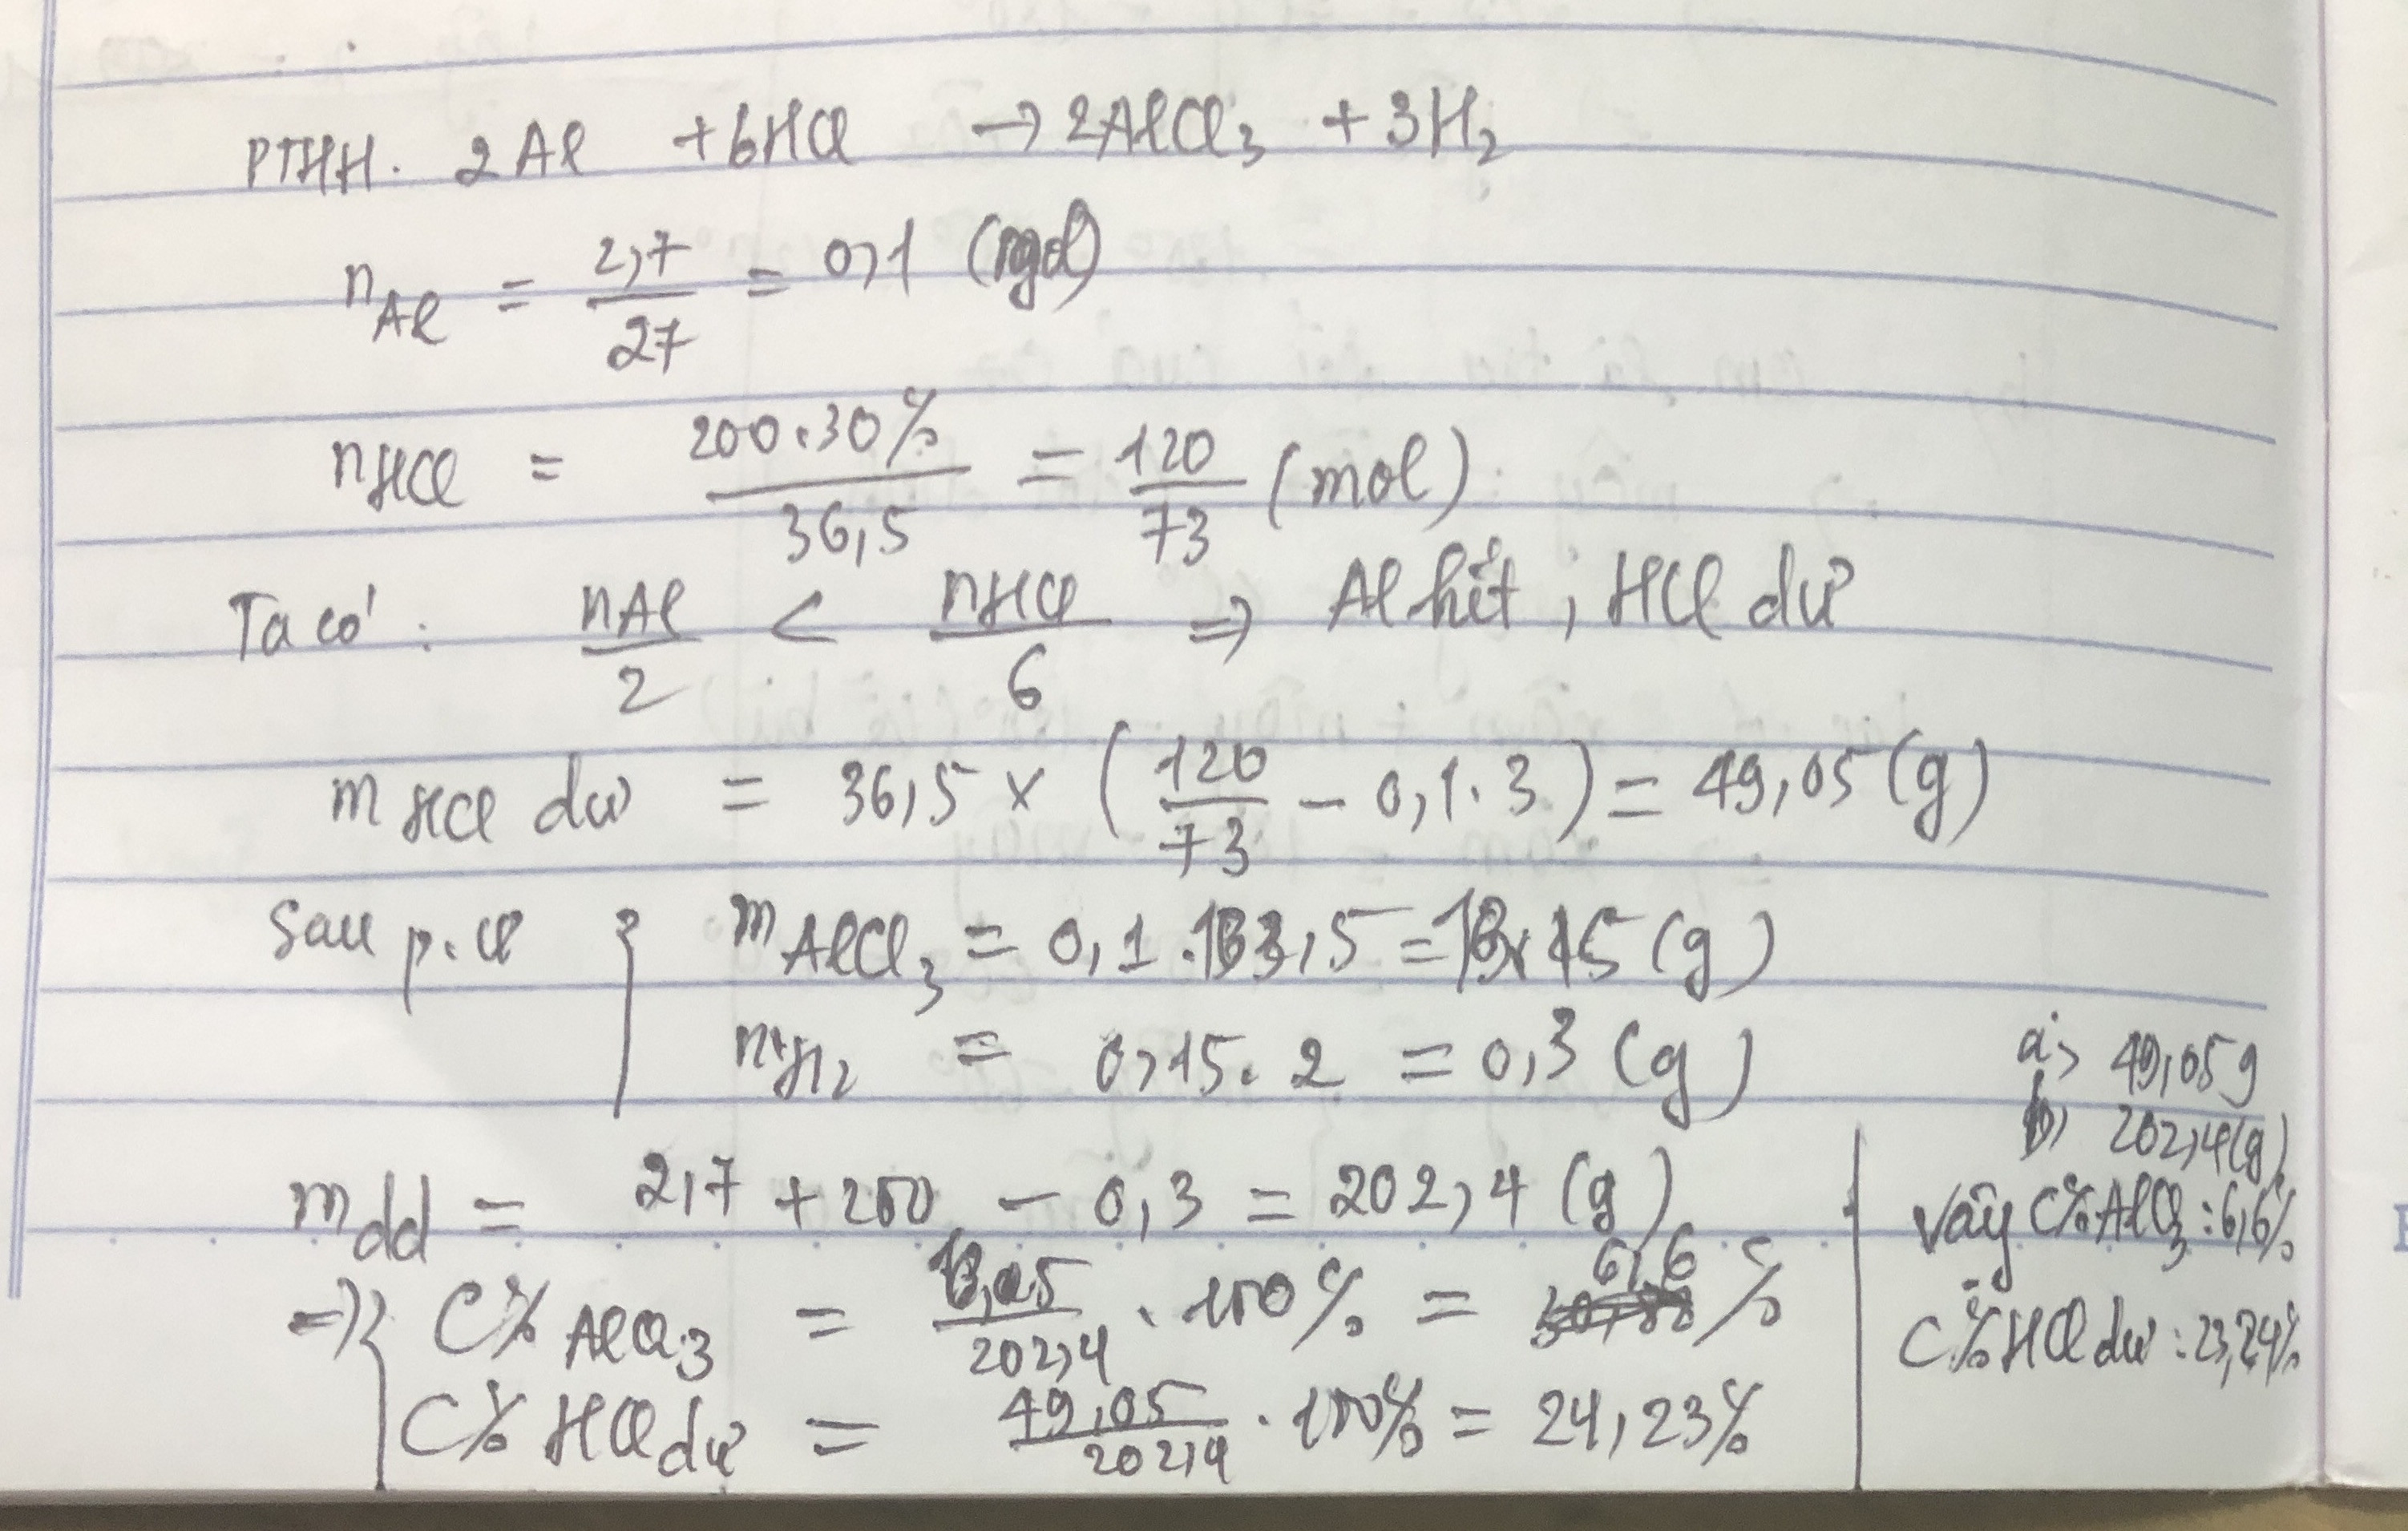 PTHH. 2Al + 6HCl → 2AlCl₃ + 3H₂
nAl = 2,7/27 = 0,1 (mol)
nHCl = 200.30%/36,5 = 120/73 (mol)
Ta có: nAl/2 < nHCl/6 ⇒ Al hết, HCl dư
mHCl dư = 36,5 × (120/73 − 0,1.3) = 49,05 (g)
Sau p.ư { mAlCl₃ = 0,1.133,5 = (g)
mH₂ = 0,15.2 = 0,3 (g)
mdd = 2,7 + 200 − 0,3 = 202,4 (g)
⇒ { C% AlCl₃ = /202,4 . 100% = 6,6 %
C% HCl dư = 49,05/202,4 . 100% = 24,23%
a, 49,05g
b, 202,4(g)
Vậy C% AlCl₃: 6,6%
C% HCl dư: 23,24%